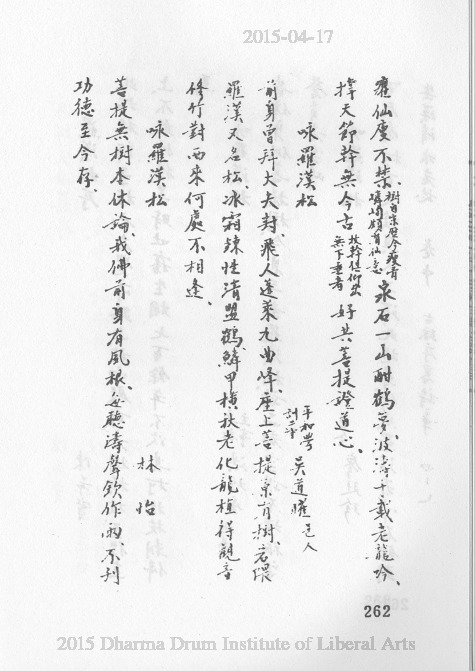 2015-04-17
癯仙度不禁、樹自宋歷今瘦骨嶙峋頗有仙意泉石一山酣鶴夢、波濤千載老龍吟、
撐天節幹無今古枝幹俱仰出無下垂者好共菩提證道心、
詠羅漢松
吳道曜
前身曾拜大夫封、飛入蓬萊九曲峰、座上菩提原有樹、岩隈
羅漢又名松、冰霜練性清盟鶴、鱗甲橫秋老化龍、植得觀音
修竹對、西來何處不相逢、
詠羅漢松
林怡
菩提無樹本休論、我佛前身有風根、每聽濤聲欽作雨、不刊
功德至今存、
262
2015 Dharma Drum Institute of Liberal Arts